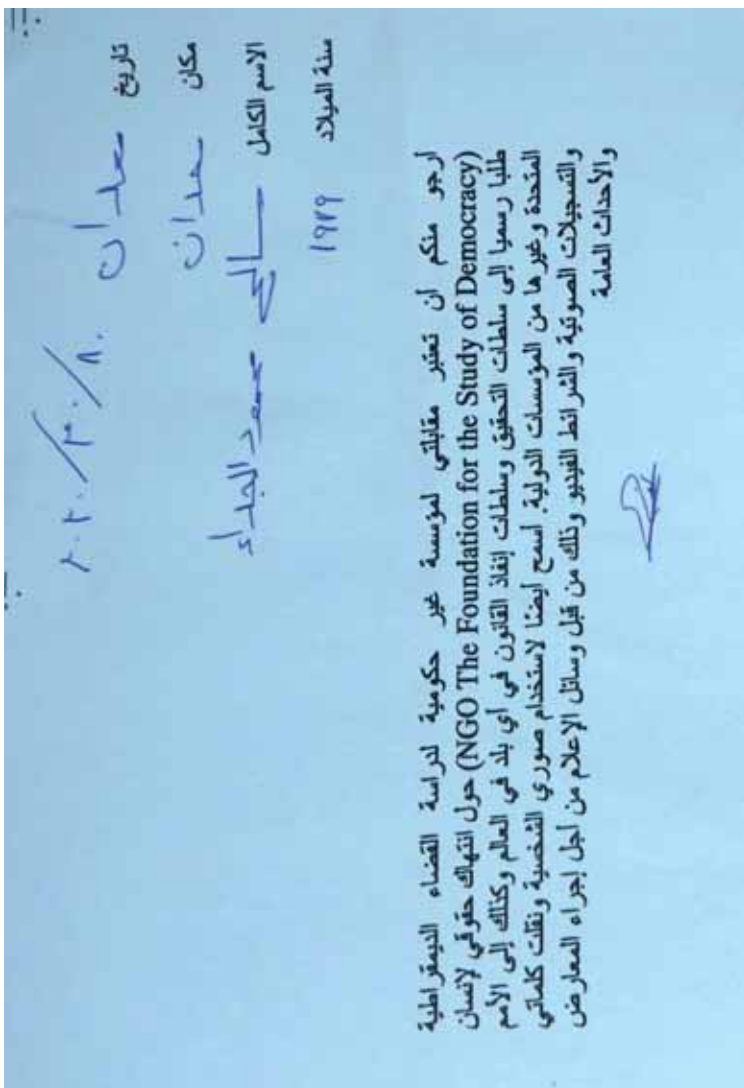 تاريخ معدان ٢٠٢٠/٣٠/٨٠
مكان معدان
الاسم الكامل صالح محمود الجداء
سنة الميلاد ١٩٧٩
أرجو منكم أن تعتبر مقابلتي لمؤسسة غير حكومية لدراسة القضاء الديمقراطية
(NGO The Foundation for the Study of Democracy) حول انتهاك حقوقي لإنسان
طلبا رسميا إلى سلطات التحقيق وسلطات إنفاذ القانون في أي بلد في العالم وكذلك إلى الأمم
المتحدة وغيرها من المؤسسات الدولية. اسمح أيضنا لاستخدام صوري الشخصية ونقلت كلماتي
والتسجيلات الصوتية والشرائط الفيديو وذلك من قبل وسائل الإعلام من أجل إجراء المعارض
والأحداث العامة